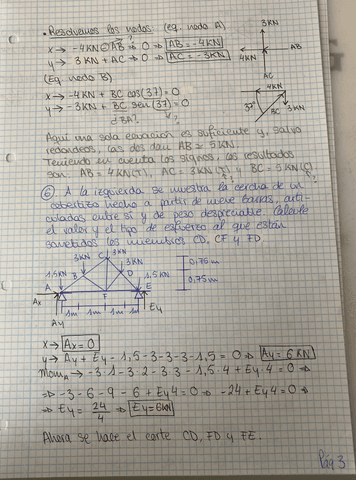 • Resolvemos los nodos (eq. nodo A)
x → -4KN ⊖ AB = 0 ⇒ AB = -4KN
y → 3 KN + AC = 0 ⇒ AC = -3KN
?
3KN
4KN
AB
AC
(Eq. nodo B)
x → -4KN + BC cos(37) = 0
y → -3KN + BC sen(37) = 0
¿BA?
?
4KN
37°
BC
3KN
Aquí una sola ecuación es suficiente y, salvo
redondeos, las dos dan AB ≃ 5KN
Teniendo en cuenta los signos, los resultados
son AB = 4KN(T), AC = 3KN(T) y BC = 5KN(C)
? ? ?
⑥ A la izquierda se muestra la cercha de un
cobertizo hecho a partir de nueve barras, arti-
culadas entre sí y de peso despreciable. Calcule
el valor y el tipo de esfuerzo al que están
sometidos los miembros CD, CF y FD.
3KN
3KN C
3KN
0,75m
1,5KN
B
D
1,5KN
0,75m
A
E
Ax
F
Ay
1m 1m 1m 1m
Ey
x → Ax = 0
y → Ay + Ey - 1,5 - 3 - 3 - 3 - 1,5 = 0 ⇒ Ay = 6KN
Mom A → -3·1 - 3·2 - 3·3 - 1,5·4 + Ey·4 = 0 ⇒
⇒ -3 - 6 - 9 - 6 + Ey4 = 0 ⇒ -24 + Ey4 = 0 ⇒
⇒ Ey = 24/4 ⇒ Ey = 6KN
Ahora se hace el corte CD, FD y FE.
Pág 3